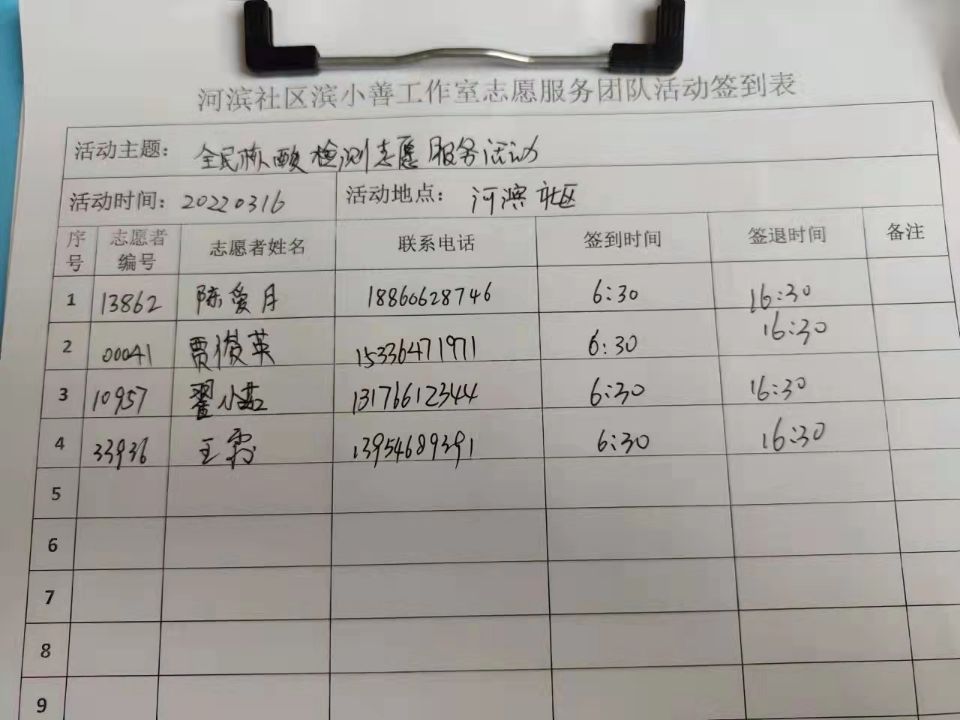 河滨社区滨小善工作室志愿服务团队活动签到表
活动主题： 全民核酸检测志愿服务活动
活动时间：20220316 活动地点： 河滨社区
序号 志愿者编号 志愿者姓名 联系电话 签到时间 签退时间 备注
1 13862 陈爱月 18860628746 6:30 16:30
2 00041 贾俊英 15336471971 6:30 16:30
3 10957 翟小茹 13176612344 6:30 16:30
4 33936 王霞 13954689391 6:30 16:30
5
6
7
8
9